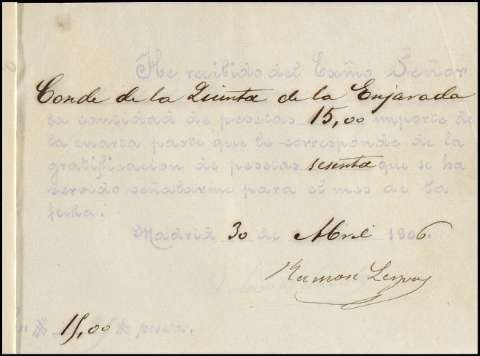 He recibido del Exmo Señor
Conde de la Quinta de la Enjarada
la cantidad de pesetas 15,00 importe de
la cuarta parte que le corresponde de la
gratificacion de pesetas sesenta que se ha
servido señalarme para el mes de la
fecha.
Madrid 30 de Abril 1906.
Ramon
15,00 pesetas.